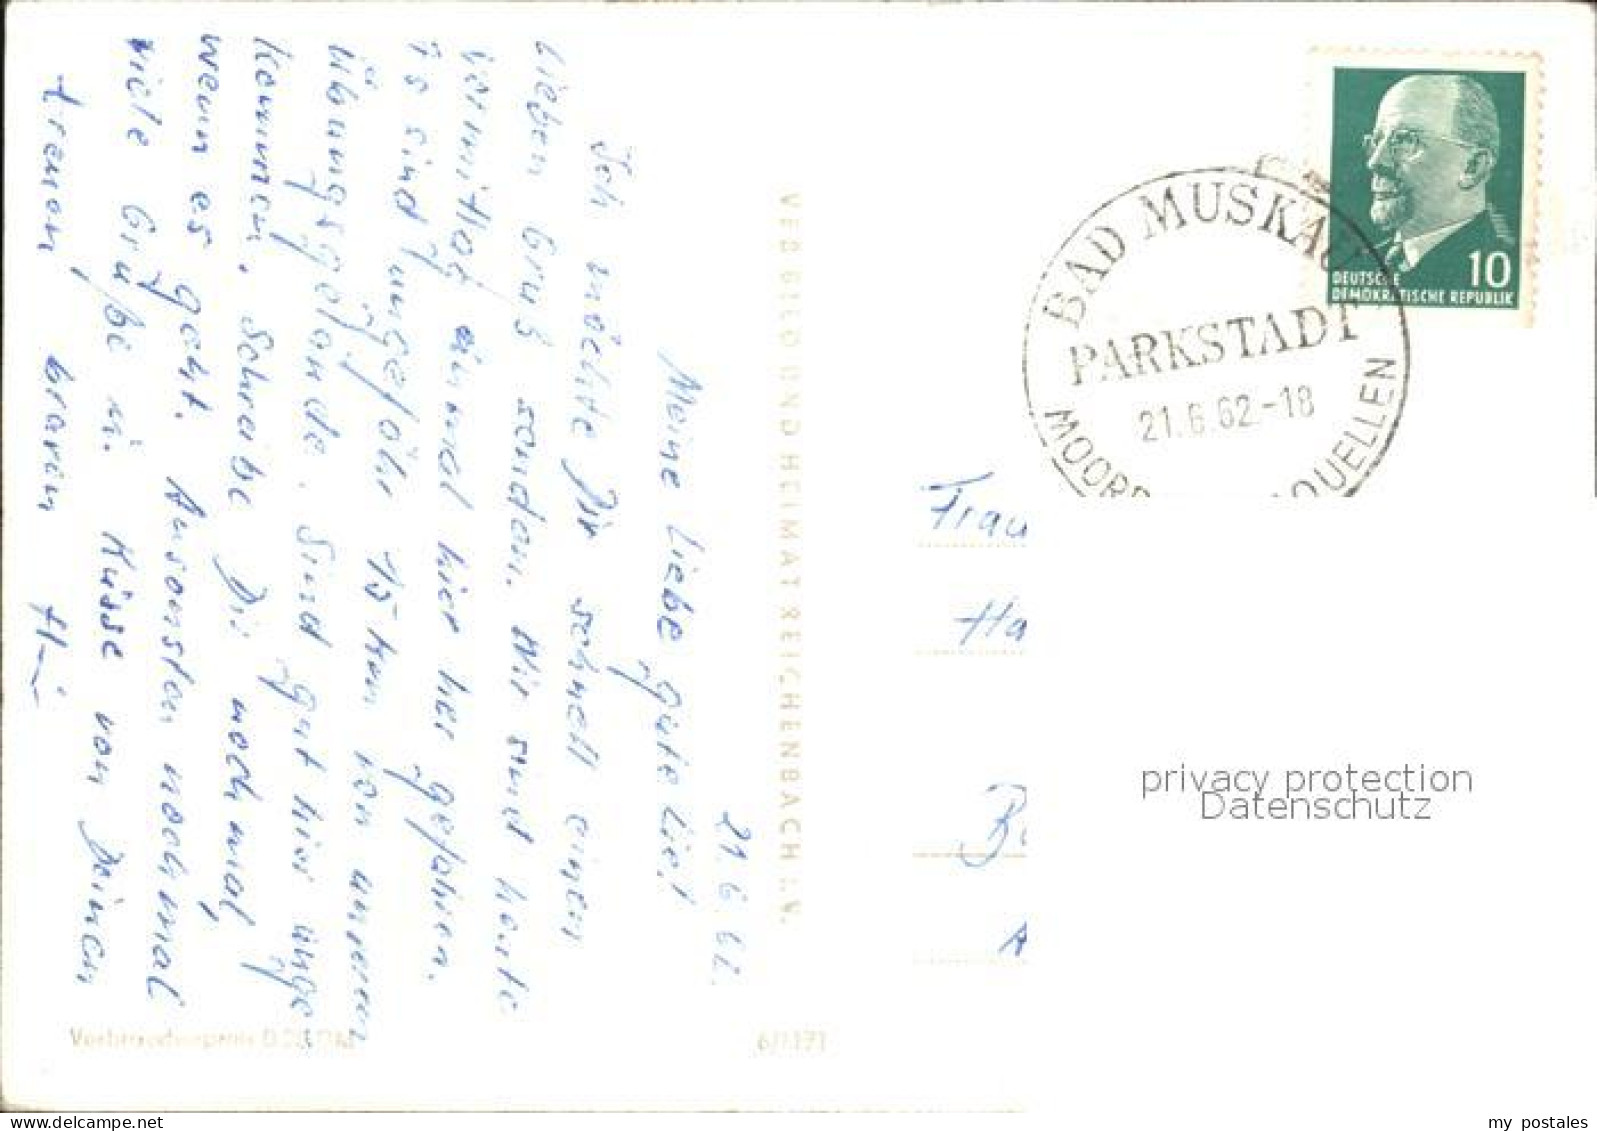 21.6.62.
Meine liebe gute Lie!
Ich möchte Dir schnell einen
lieben Gruß senden. Wir sind heute
vormittag einmal hier her gefahren.
Es sind ungefähr 15 km von unserem
Übungsgelände. Sind gut hier ange
kommen. Schreibe Dir noch mal,
wenn es geht. Ansonsten nochmal
viele Grüße u. Küsse von Deinen
treuen, braven
VEB BILD UND HEIMAT REICHENBACH I. V.
Verbraucherpreis 0,20 DM
6/1171
DEUTSCHE
DEMOKRATISCHE REPUBLIK
10
BAD MUSKAU
PARKSTADT
21.6.62.-18
MOORB
QUELLEN
Frau
Ha
privacy protection
Datenschutz
my postales